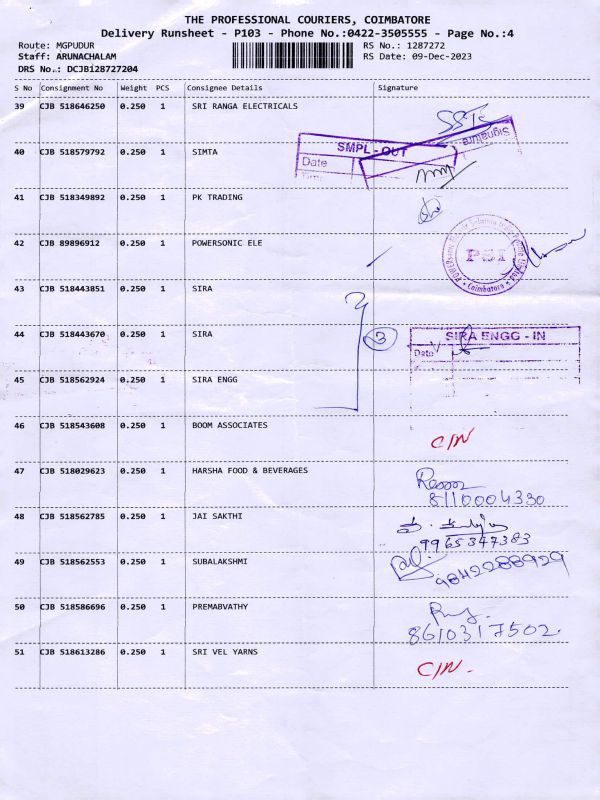 THE PROFESSIONAL COURIERS, COIMBATORE
Delivery Runsheet - P103 - Phone No.:0422-3505555 - Page No.:4
Route: MGPUDUR
RS No.: 1287272
Staff: ARUNACHALAM
RS Date: 09-Dec-2023
DRS No.: DCJBi28727204
S No Consignment No Weight PCS Consignee Details Signature
39 CJB 518646250 0.250 1 SRI RANGA ELECTRICALS
Signature
SMPL - OUT
Date
40 CJB 518579792 0.250 1 SIMTA
41 CJB 518349892 0.250 1 PK TRADING
42 CJB 89896912 0.250 1 POWERSONIC ELE
PSI
Coimbatore
43 CJB 518443851 0.250 1 SIRA
44 CJB 518443670 0.250 1 SIRA
3
SIRA ENGG - IN
Date
45 CJB 518562924 0.250 1 SIRA ENGG
46 CJB 518543608 0.250 1 BOOM ASSOCIATES
C/N
47 CJB 518029623 0.250 1 HARSHA FOOD & BEVERAGES
8110004330
48 CJB 518562785 0.250 1 JAI SAKTHI
9965347383
49 CJB 518562553 0.250 1 SUBALAKSHMI
9842288929
50 CJB 518586696 0.250 1 PREMABVATHY
8610317502.
51 CJB 518613286 0.250 1 SRI VEL YARNS
C/N.